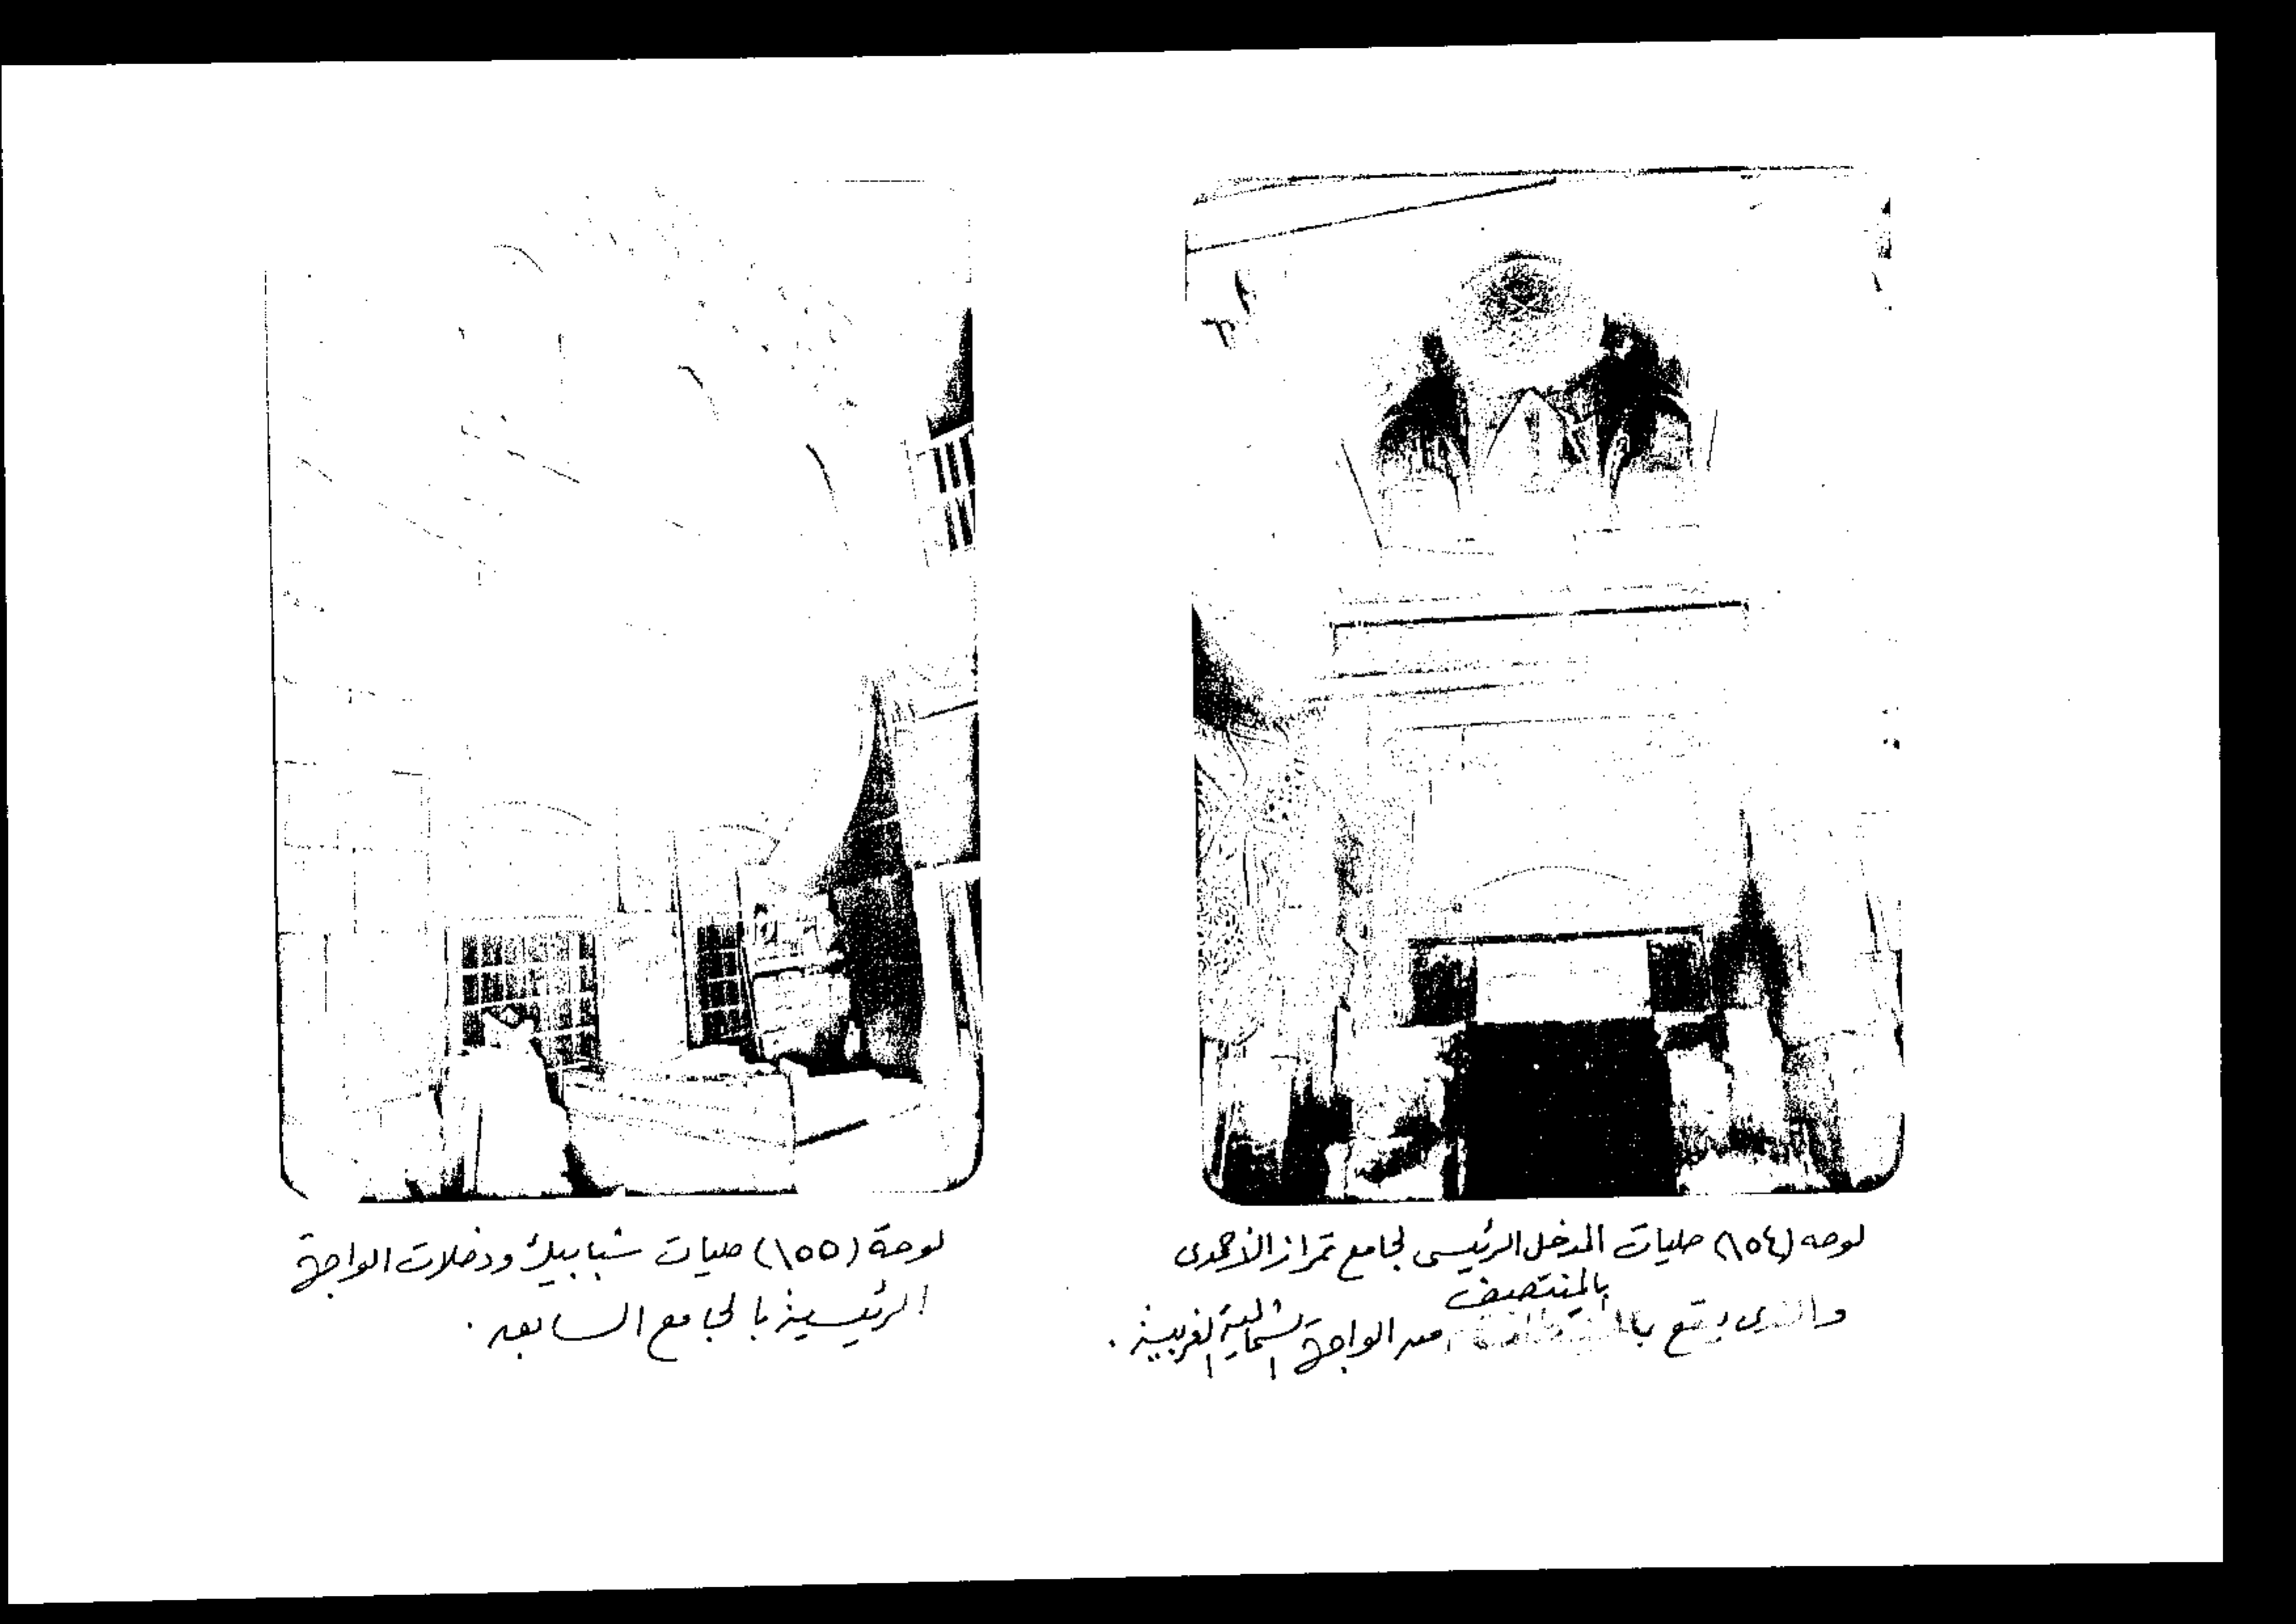 لوحه (١٥٤) حليات المدخل الرئيسى لجامع تمراز الأحمدى
بالمنتصف
والذى يقع من الواجهة الشمالية الغربية .
لوحة (١٥٥) حليات شبابيك ودخلات الواجهة
الرئيسية بالجامع السابق .